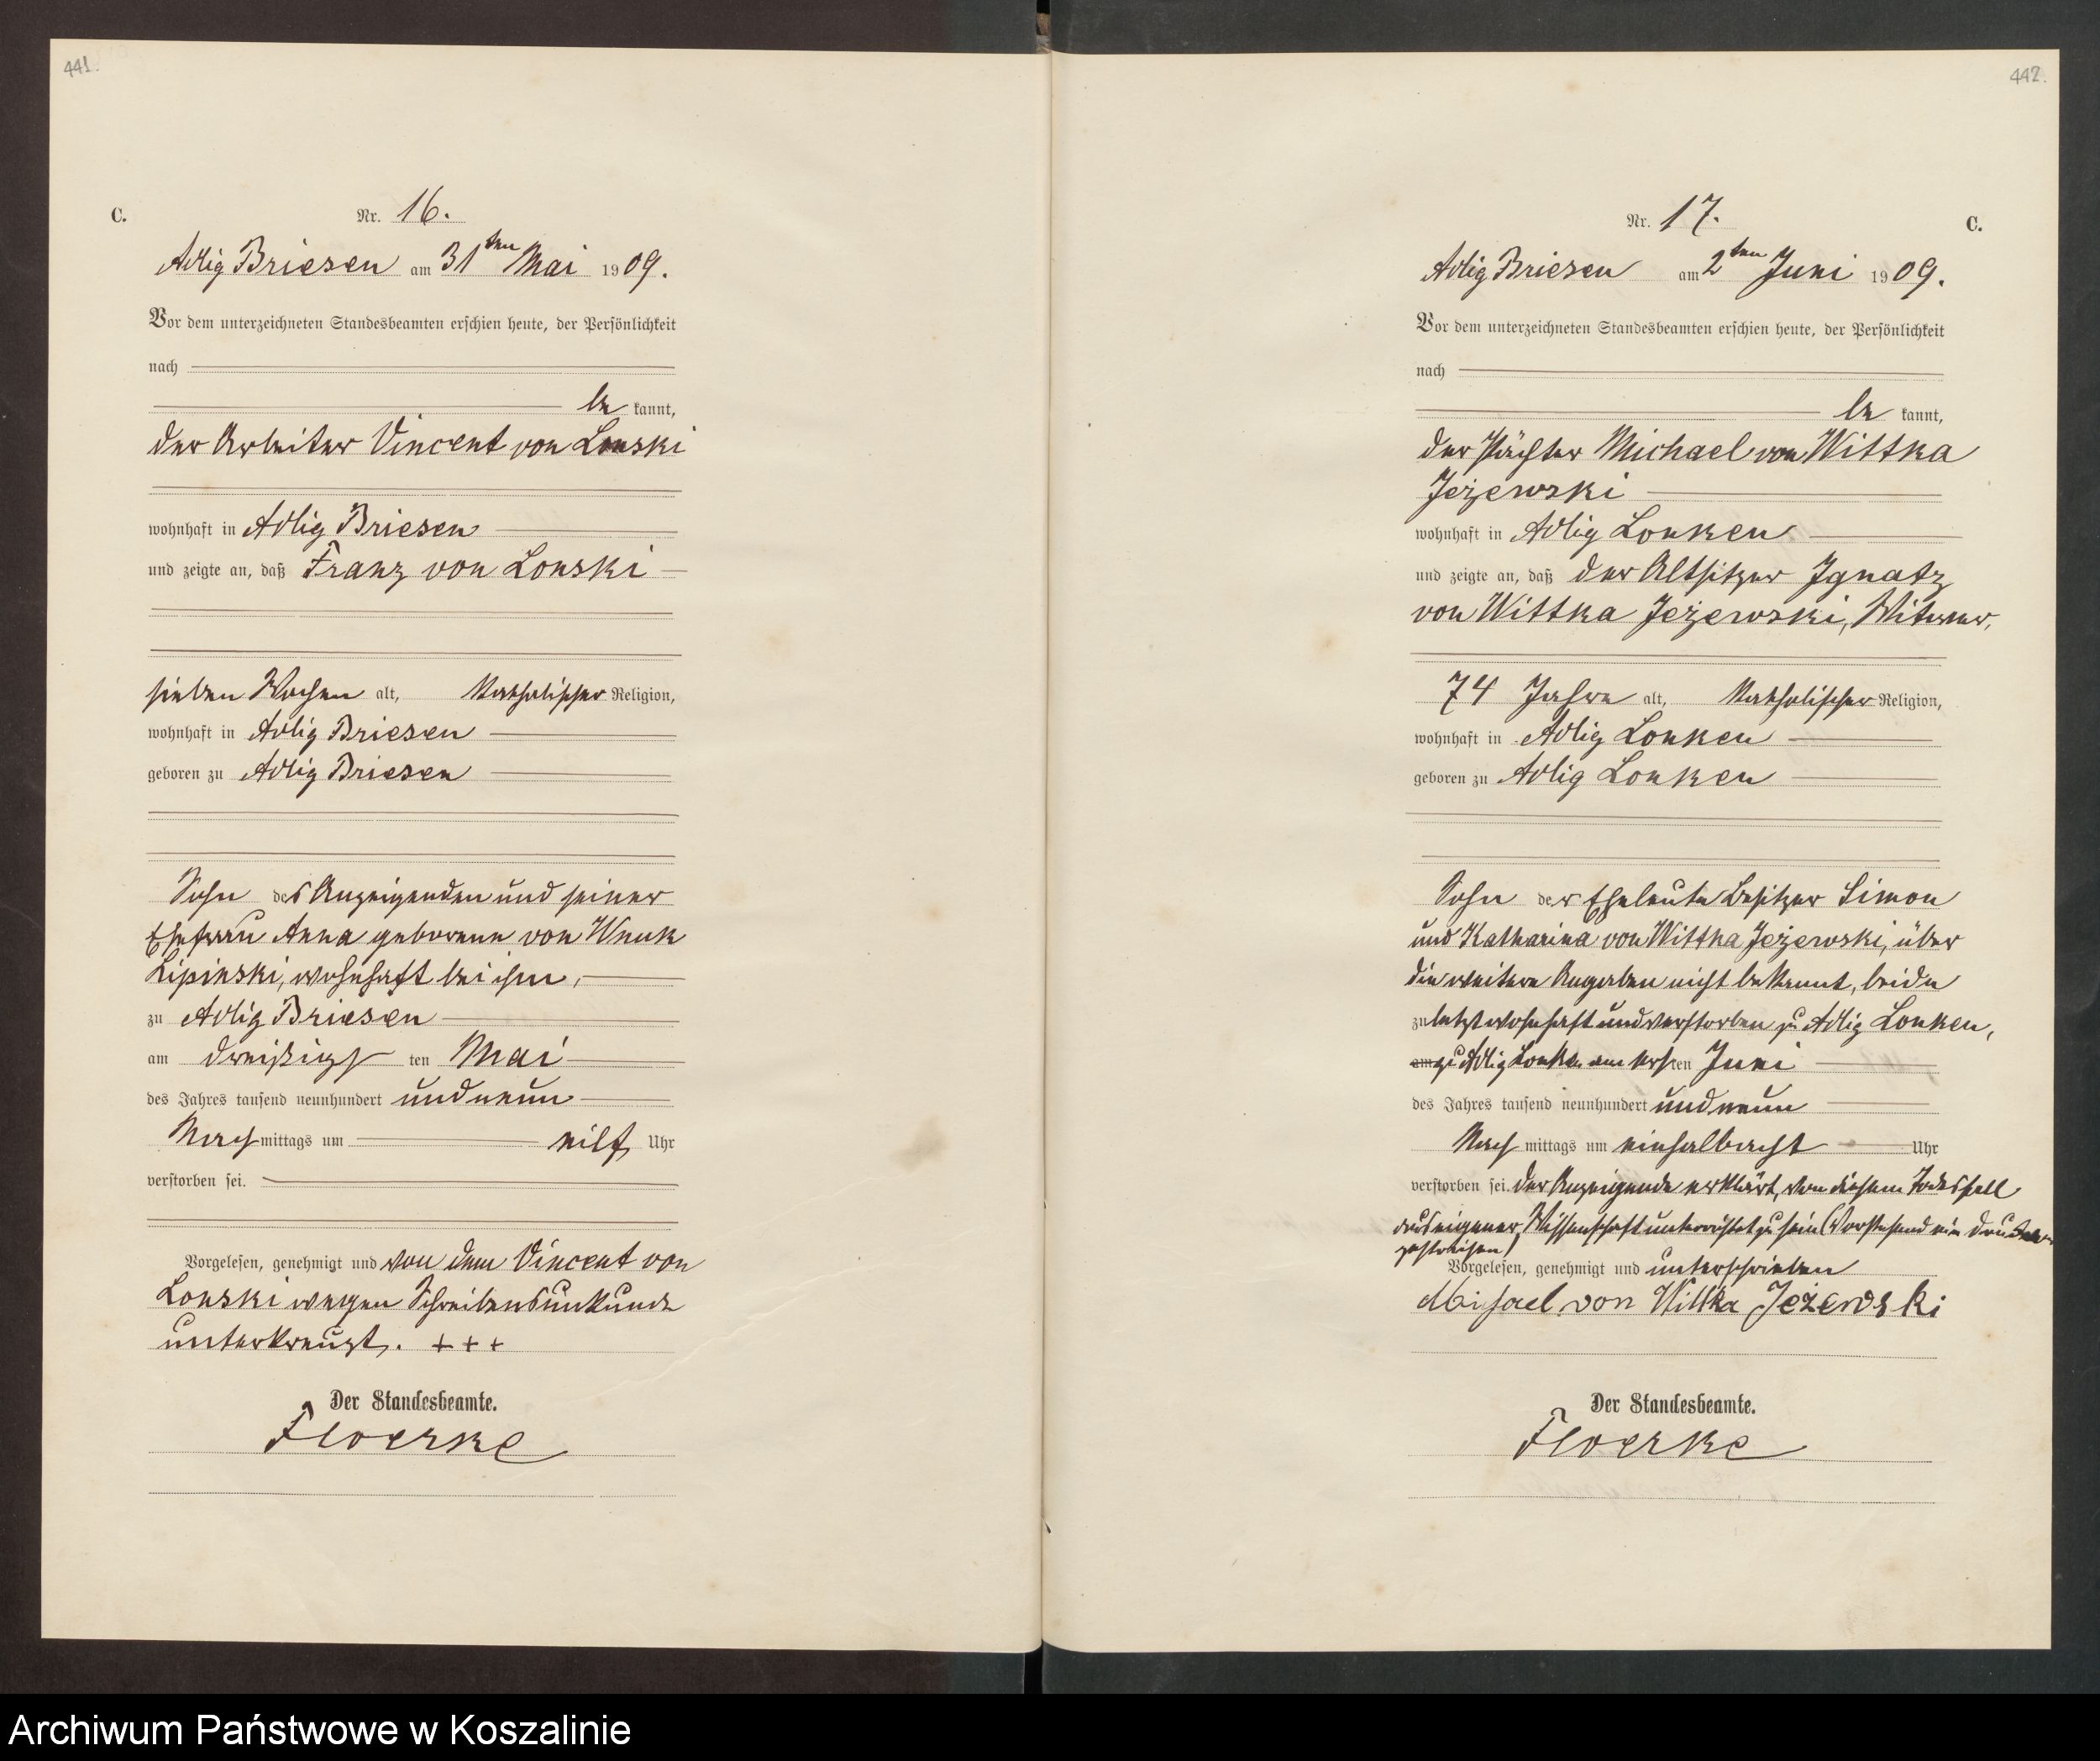 441.
C.
Nr. 16.
Adlig Briesen am 31ten Mai 1909.
Vor dem unterzeichneten Standesbeamten erschien heute, der Persönlichkeit
nach
be kannt,
der Arbeiter Vincent von Lonski
wohnhaft in Adlig Briesen
und zeigte an, daß Franz von Lonski
sieben Wochen alt, katholischer Religion,
wohnhaft in Adlig Briesen
geboren zu Adlig Briesen
Sohn des Anzeigenden und seiner
Ehefrau Anna geborene von Wnuk
Lipinski, wohnhaft bei ihm,
zu Adlig Briesen
am dreißigst ten Mai
des Jahres tausend neunhundert und neun
Nach mittags um elf Uhr
verstorben sei.
Vorgelesen, genehmigt und von dem Vincent von
Lonski wegen Schreibensunkunde
unterkreuzt. + + +
Der Standesbeamte.
Floerke
442.
C.
Nr. 17.
Adlig Briesen am 2ten Juni 1909.
Vor dem unterzeichneten Standesbeamten erschien heute, der Persönlichkeit
nach
be kannt,
der Pächter Michael von Wittka
Jeżewski
wohnhaft in Adlig Lonken
und zeigte an, daß der Altsitzer Ignatz
von Wittka Jeżewski, Witwer,
74 Jahre alt, katholischer Religion,
wohnhaft in Adlig Lonken
geboren zu Adlig Lonken
Sohn der Eheleute Besitzer Simon
und Katharina von Wittka Jeżewski, über
die weitere Angaben nicht bekannt, beide
zuletzt wohnhaft und verstorben zu Adlig Lonken,
am zu Adlig Lonken am ersten Juni
des Jahres tausend neunhundert und neun
Nach mittags um einhalbacht Uhr
verstorben sei. Der Anzeigende erklärt, von diesem Todesfall
aus eigener Wissenschaft unterrichtet zu sein (Vorstehend ein Druckwort
gestrichen)
Vorgelesen, genehmigt und unterschrieben
Michael von Wittka Jeżewski
Der Standesbeamte.
Floerke
Archiwum Państwowe w Koszalinie